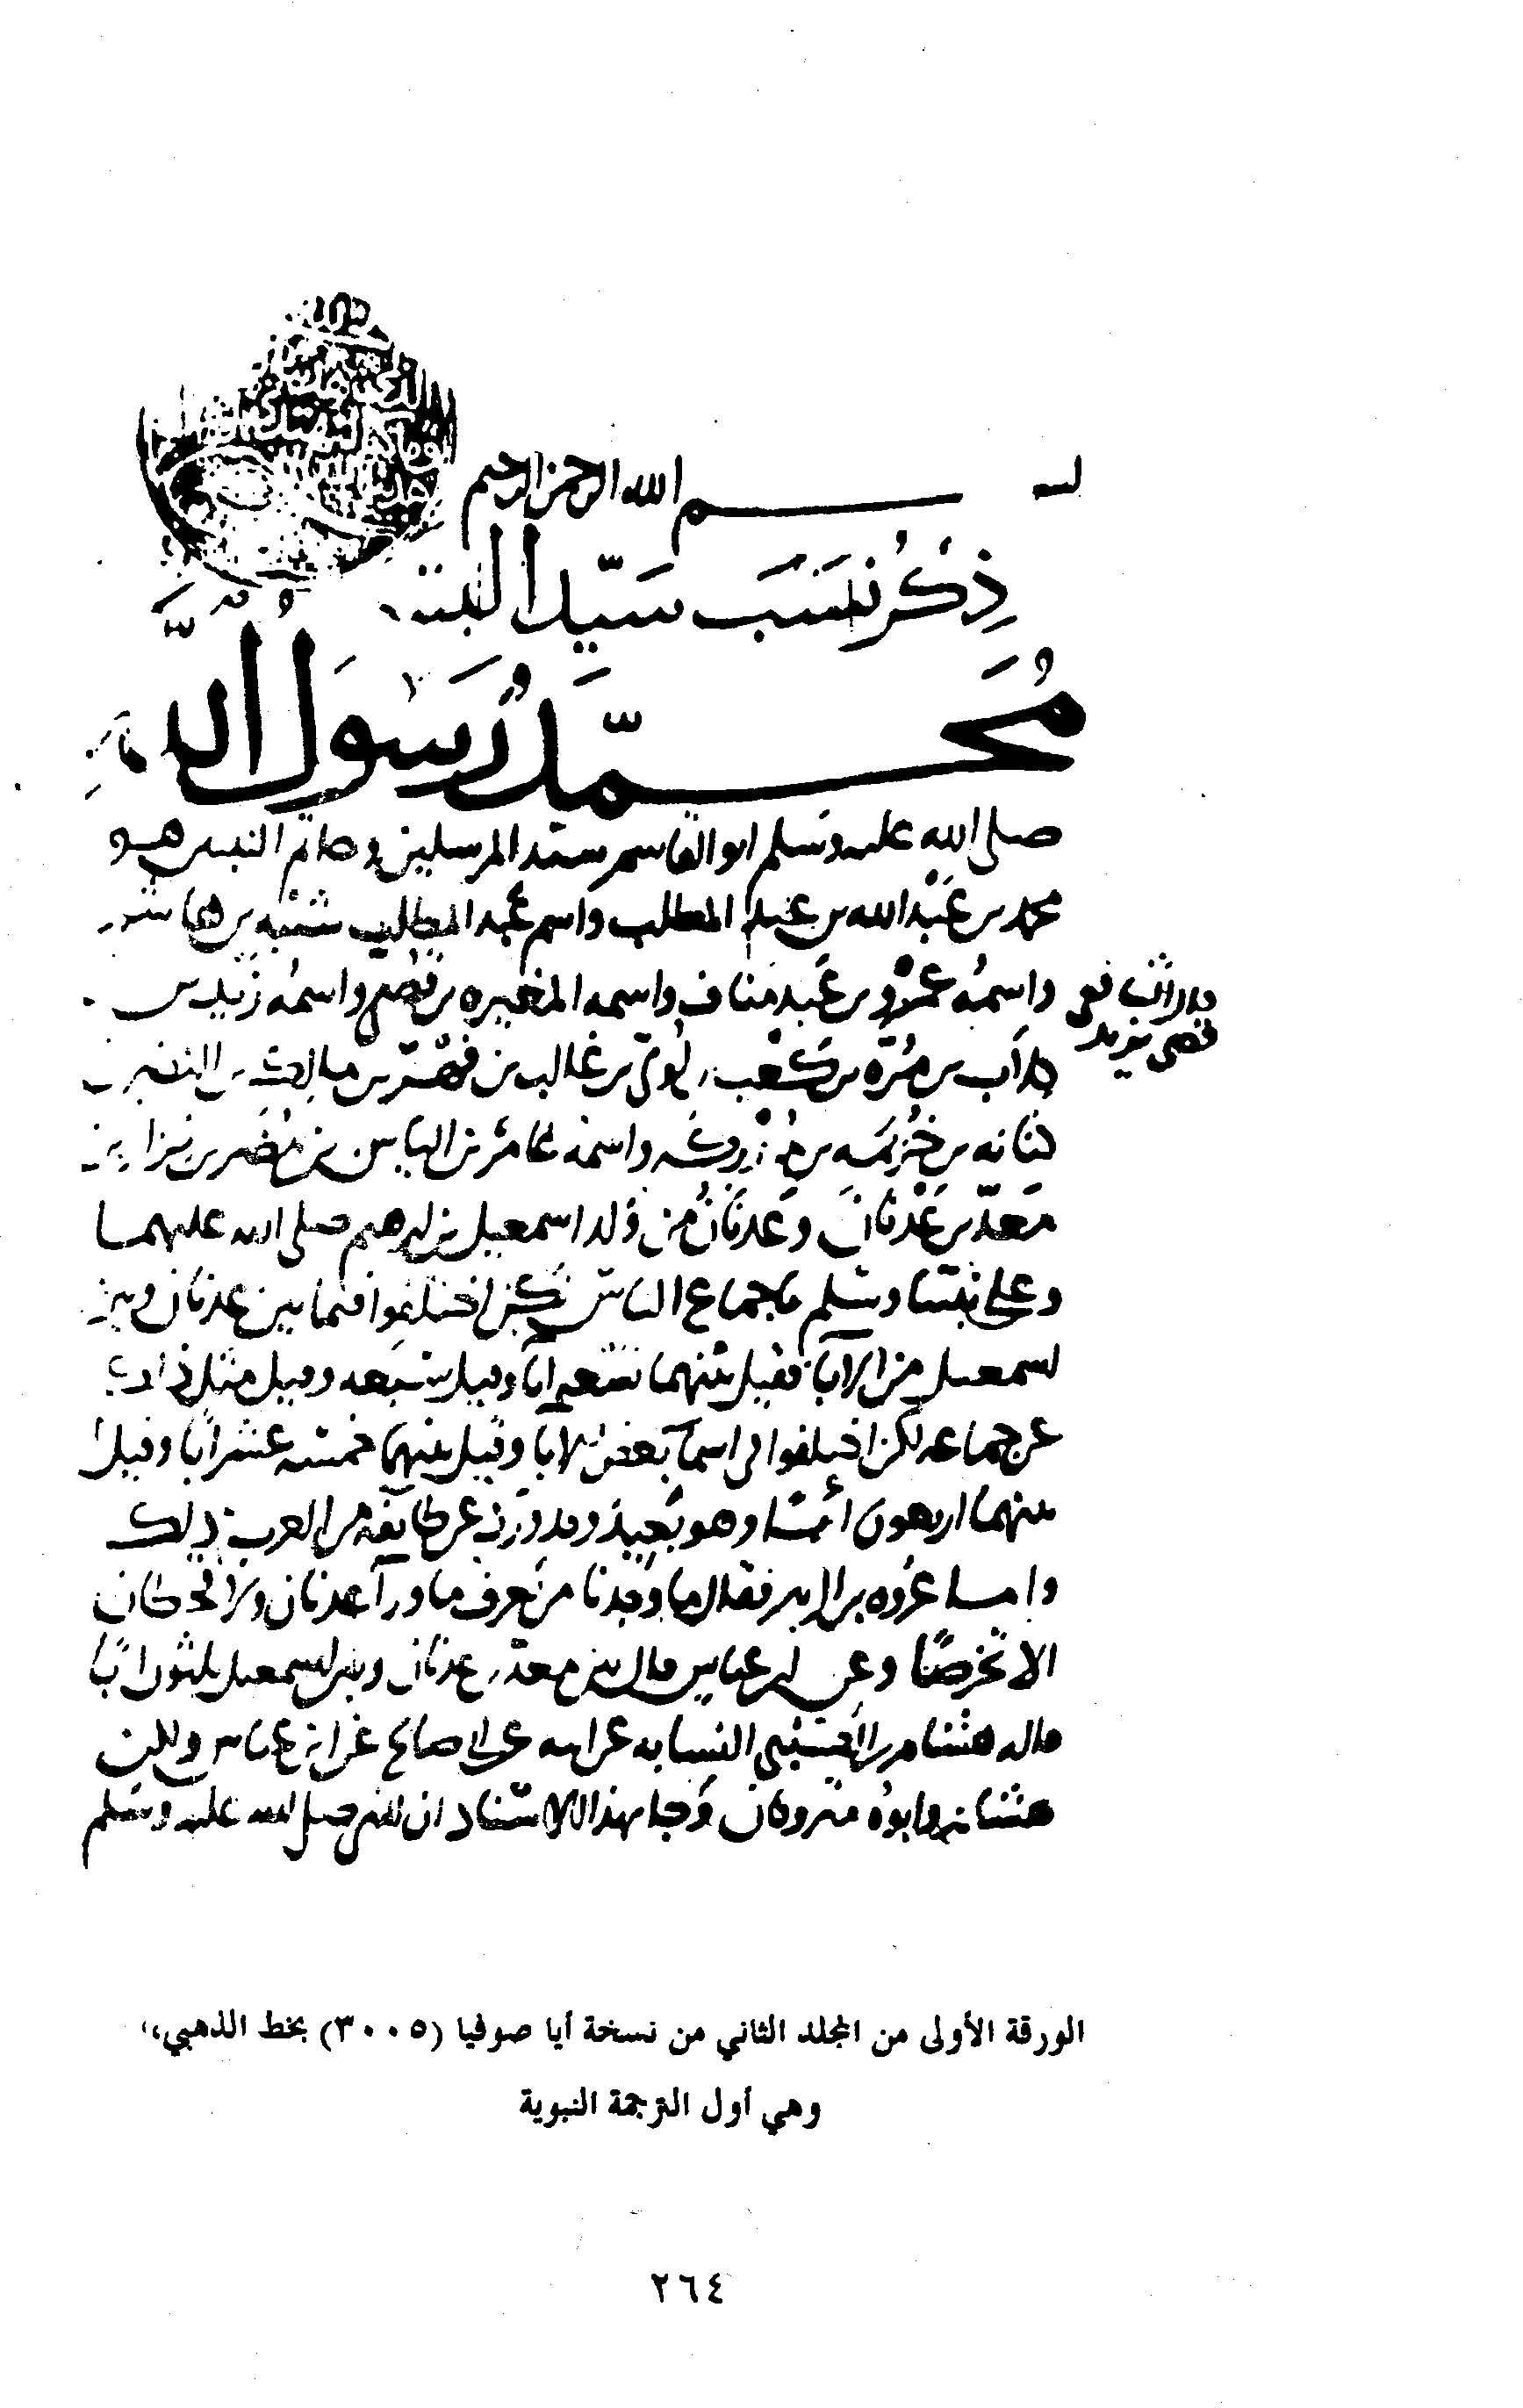 بسم الله الرحمن الرحيم
ذِكْرُ نَسَبِ سَيِّدِ البشر
مُحَمَّدٌ رَسُولُ اللَّهِ
صلى الله عليه وسلم ابو القاسم سيد المرسلين وخاتم النبيين هو
محمد بن عَبْد الله بن عبد المطلب واسم عبد المطلب شيبه بن هاشم
واسمُه عَمْرو بن عَبد مَناف واسمه المغيره بن قُصي واسمُه زَيد بن
قال الشافعي
قصي يزيد
كلاب بن مُرّه بن كعْب بن لُوَيّ بن غالب بن فهْر بن مالك بن النضر بن
كنانه بن خُزَيمَه بن مُدركه واسمه عامر بن الياس بن مُضَر بن نزار بن
مَعَدّ بن عَدْنانَ وعَدنَانُ من وَلد اسمعيل بن ابرهيم صلى الله عليهما
وعلى نبينا وسلم باجماع الناس لكن اختلفوا فيما بين عدنان وبين
اسمعيل من الآبآ فقيل بينهما تسعه آبا وقيل سَبعه وقيل مثل ذلك
عن جماعه لكن اختلفوا في اسمآ بَعض الآبا وقيل بينهما خمسه عشر ابًا وقيل
بينهما اربعون ابًا وهو بَعيد وقد ورد عن طايفه من العرب ذلك
وامـا عُروه بن الزبير فقال ما وَجدنا من يَعرف ما ورآ عدنان ولا قحطان
الا تخرصًا وعن ابن عباس قال بين معدّ بن عدنان وبين اسمعيل ثلثون ابًا
قاله هشام بن الكلبي النسابه عن ابيه عن ابي صالح عن ابن عباس ولكن
هشام وابوه متروكان وَجا بهذا الاسناد ان النبي صلى الله عليه وسلم
الورقة الأولى من المجلد الثاني من نسخة أيا صوفيا (٣٠٠٥) بخط الذهبي،
وهي أول الترجمة النبوية
٢٦٤